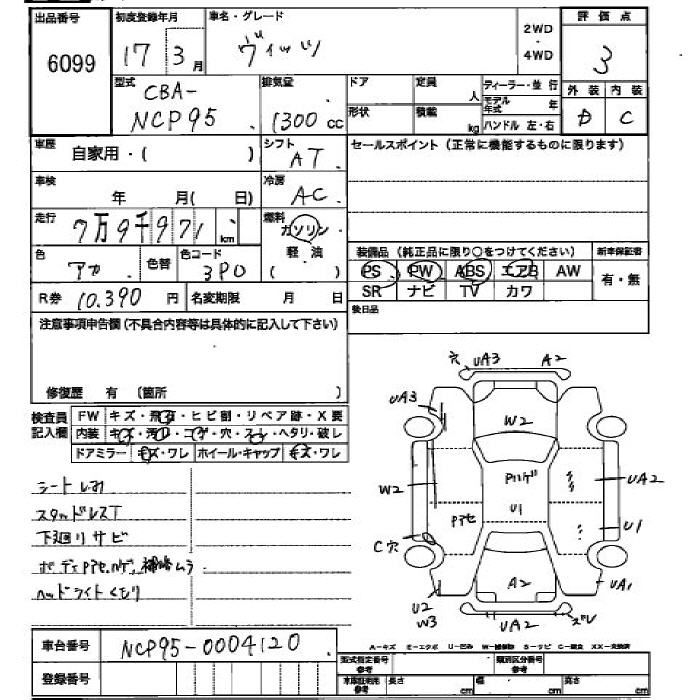 出品番号
6099
初度登録年月
17 3月
車名・グレード
ヴィッツ
2WD
・
4WD
評価点
3
外装 内装
D C
型式
CBA-
NCP95
排気量
1300cc
ドア
形状
定員
人
積載
kg
ディーラー・並行
モデル年式 年
ハンドル 左・右
車歴
自家用・( )
シフト
AT
セールスポイント(正常に機能するものに限ります)
車検
年 月( 日)
冷房
AC
走行
7万9千971km
燃料
ガソリン
軽油
( )
色
アカ
色替
色コード
3P0
装備品(純正品に限り○をつけてください)
新車保証書
PS PW ABS エアB AW
SR ナビ TV カワ
有・無
R券 10.390円
名変期限 月 日
後日品
注意事項申告欄(不具合内容等は具体的に記入して下さい)
修復歴 有 (箇所 )
検査員
記入欄
FW キズ・飛石・ヒビ割・リペア跡・X要
内装 キズ・汚れ・コゲ・穴・スレ・ヘタリ・破レ
ドアミラー キズ・ワレ ホイール・キャップ キズ・ワレ
シートしみ
スタッドレスT
下廻りサビ
ボディPアセ,ハゲ,補修ムラ
ヘッドライトくもり
穴 UA3 A2
UA3
W2
W2
Pハゲ
UA2
Pアセ
U1
U1
C穴
A2
UA1
U2
W3
UA2
ズレ
A-キズ E-エクボ U-凹み W-補修跡 S-サビ C-腐食 XX-交換済
車台番号
NCP95-0004120
登録番号
型式指定番号
参考
類別区分番号
参考
長さ cm
幅 cm
高さ cm